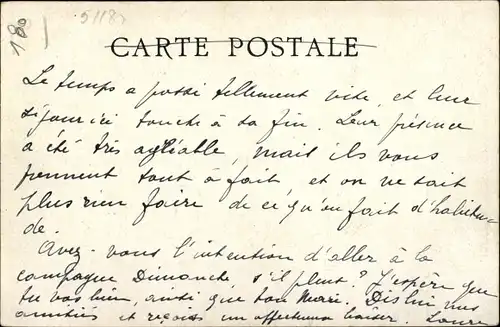 180
5118
CARTE POSTALE
Le temps a passé tellement vite, et leur
séjour ici touche à sa fin. Leur présence
a été très agréable, mais ils vous
prennent tout à fait et on ne sait
plus rien faire de ce qu'on fait d'habitu-
de.
Avez-vous l'intention d'aller à la
campagne Dimanche, s'il pleut? J'espère que
tu vas bien, ainsi que ton Mari. Dis lui mes
amitiés et reçois un affectueux baiser.